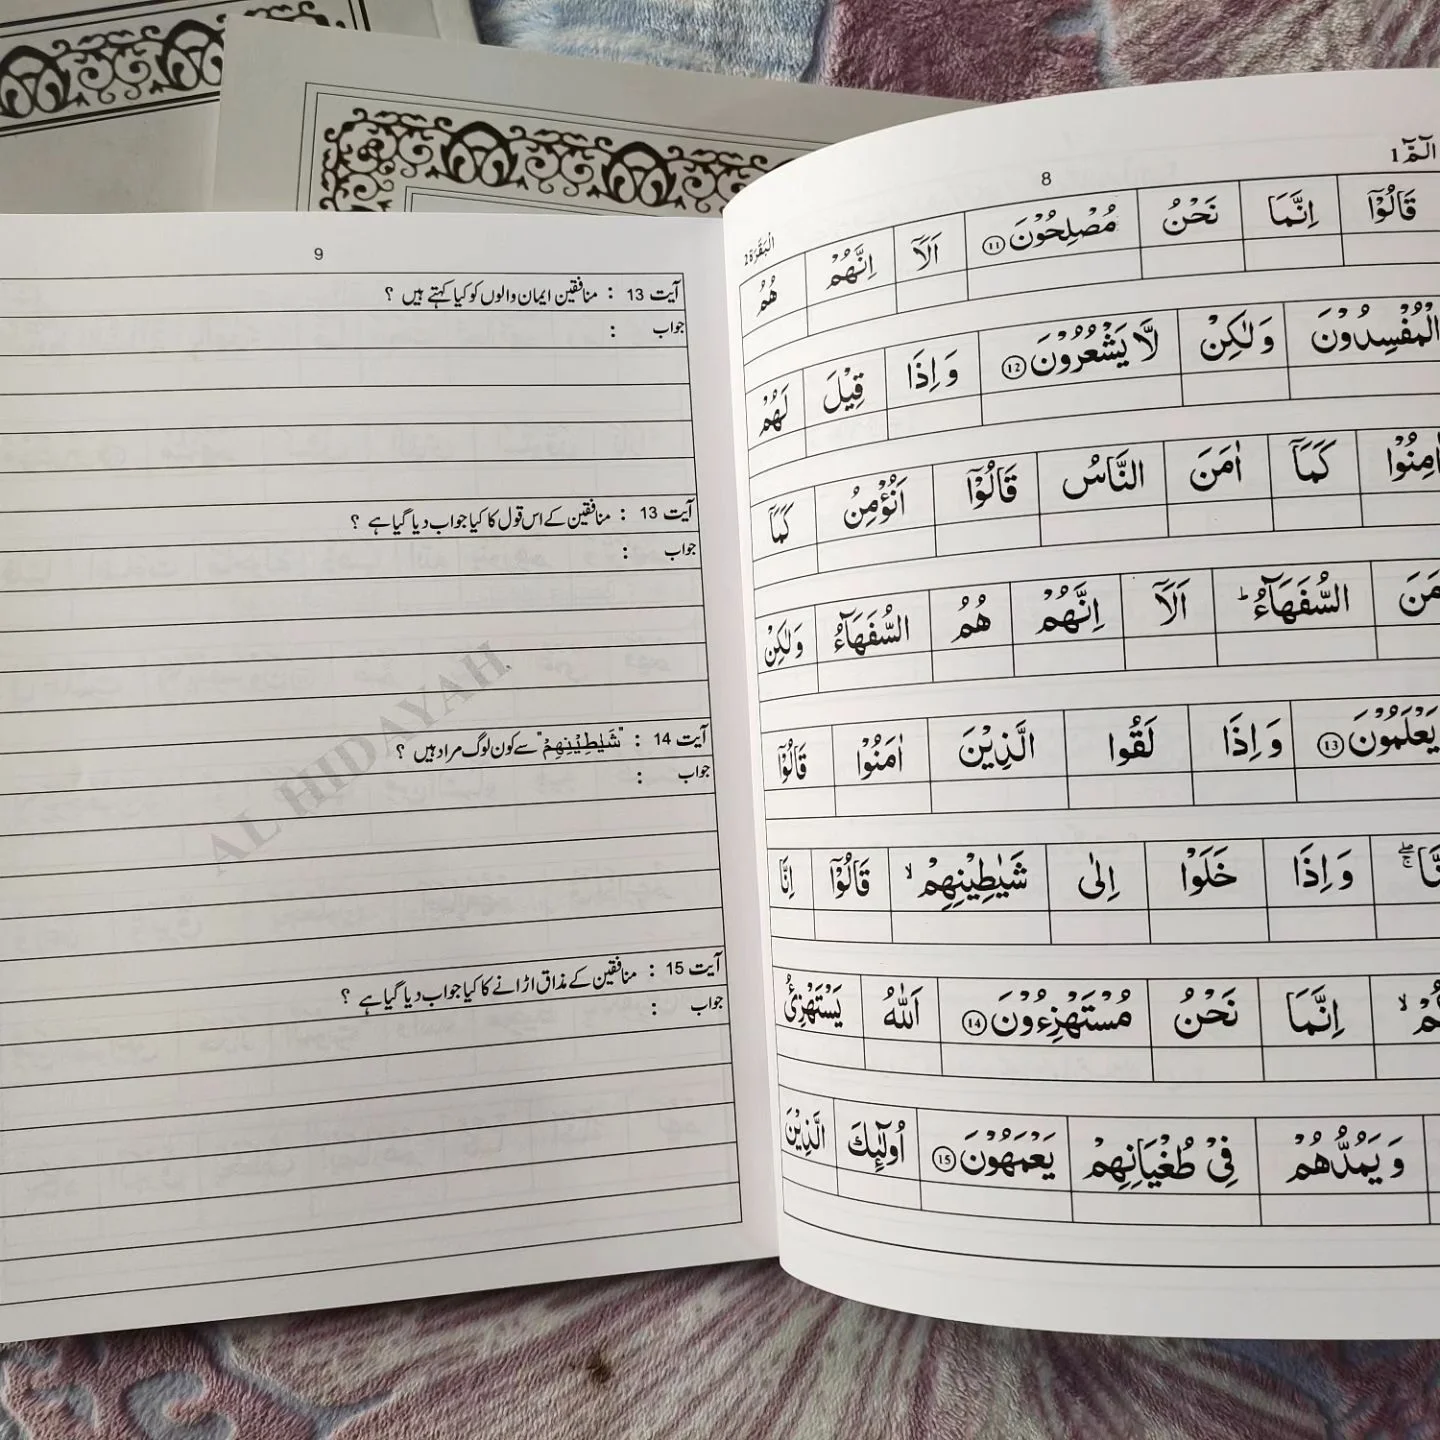 الٓمّٓ 1
8
اَلْبَقَرَة 2
قَالُوْٓا اِنَّمَا نَحْنُ مُصْلِحُوْنَ ⑪ اَلَآ اِنَّهُمْ هُمُ
الْمُفْسِدُوْنَ وَلٰكِنْ لَّا يَشْعُرُوْنَ ⑫ وَاِذَا قِيْلَ لَهُمْ
اٰمِنُوْا كَمَآ اٰمَنَ النَّاسُ قَالُوْٓا اَنُؤْمِنُ كَمَآ
اٰمَنَ السُّفَهَآءُ ؕ اَلَآ اِنَّهُمْ هُمُ السُّفَهَآءُ وَلٰكِنْ
يَعْلَمُوْنَ ⑬ وَاِذَا لَقُوا الَّذِيْنَ اٰمَنُوْا قَالُوْٓا
وَاِذَا خَلَوْا اِلٰى شَيٰطِيْنِهِمْ ۙ قَالُوْٓا اِنَّا
اِنَّمَا نَحْنُ مُسْتَهْزِءُوْنَ ⑭ اَللّٰهُ يَسْتَهْزِئُ
وَيَمُدُّهُمْ فِيْ طُغْيَانِهِمْ يَعْمَهُوْنَ ⑮ اُولٰٓئِكَ الَّذِيْنَ
9
آیت 13 : منافقین ایمان والوں کو کیا کہتے ہیں ؟
جواب :
آیت 13 : منافقین کے اس قول کا کیا جواب دیا گیا ہے ؟
جواب :
آیت 14 : "شَيٰطِيْنِهِمْ" سے کون لوگ مراد ہیں ؟
جواب :
آیت 15 : منافقین کے مذاق اڑانے کا کیا جواب دیا گیا ہے ؟
جواب :
AL HIDAYAH